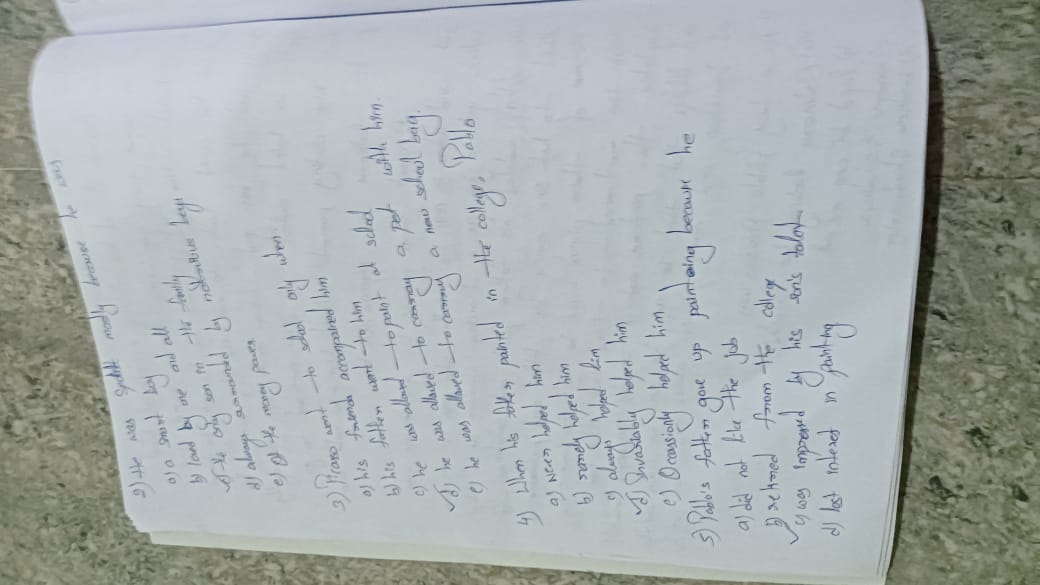 2) He was spoilt mostly because he was
a) a smart boy
b) loved by one and all
c) the only son in the family
d) always surrounded by notorious boys
e) Of the money power
3) Picaso went to school only when
a) his friends accompanied him
b) his father went to him
c) he was allowed to paint at school
d) he was allowed to carray a pet with him.
e) he was allowed to carray a new school bag.
4) When his father painted in the college, Pablo
a) never helped him
b) rarely helped him
c) always helped him
d) Invariably helped him
e) Occassionly helped him
5) Pablo's father gave up painting because he
a) did not like the job
b) retired from the college
c) was impressed by his son's talent
d) lost interest in painting